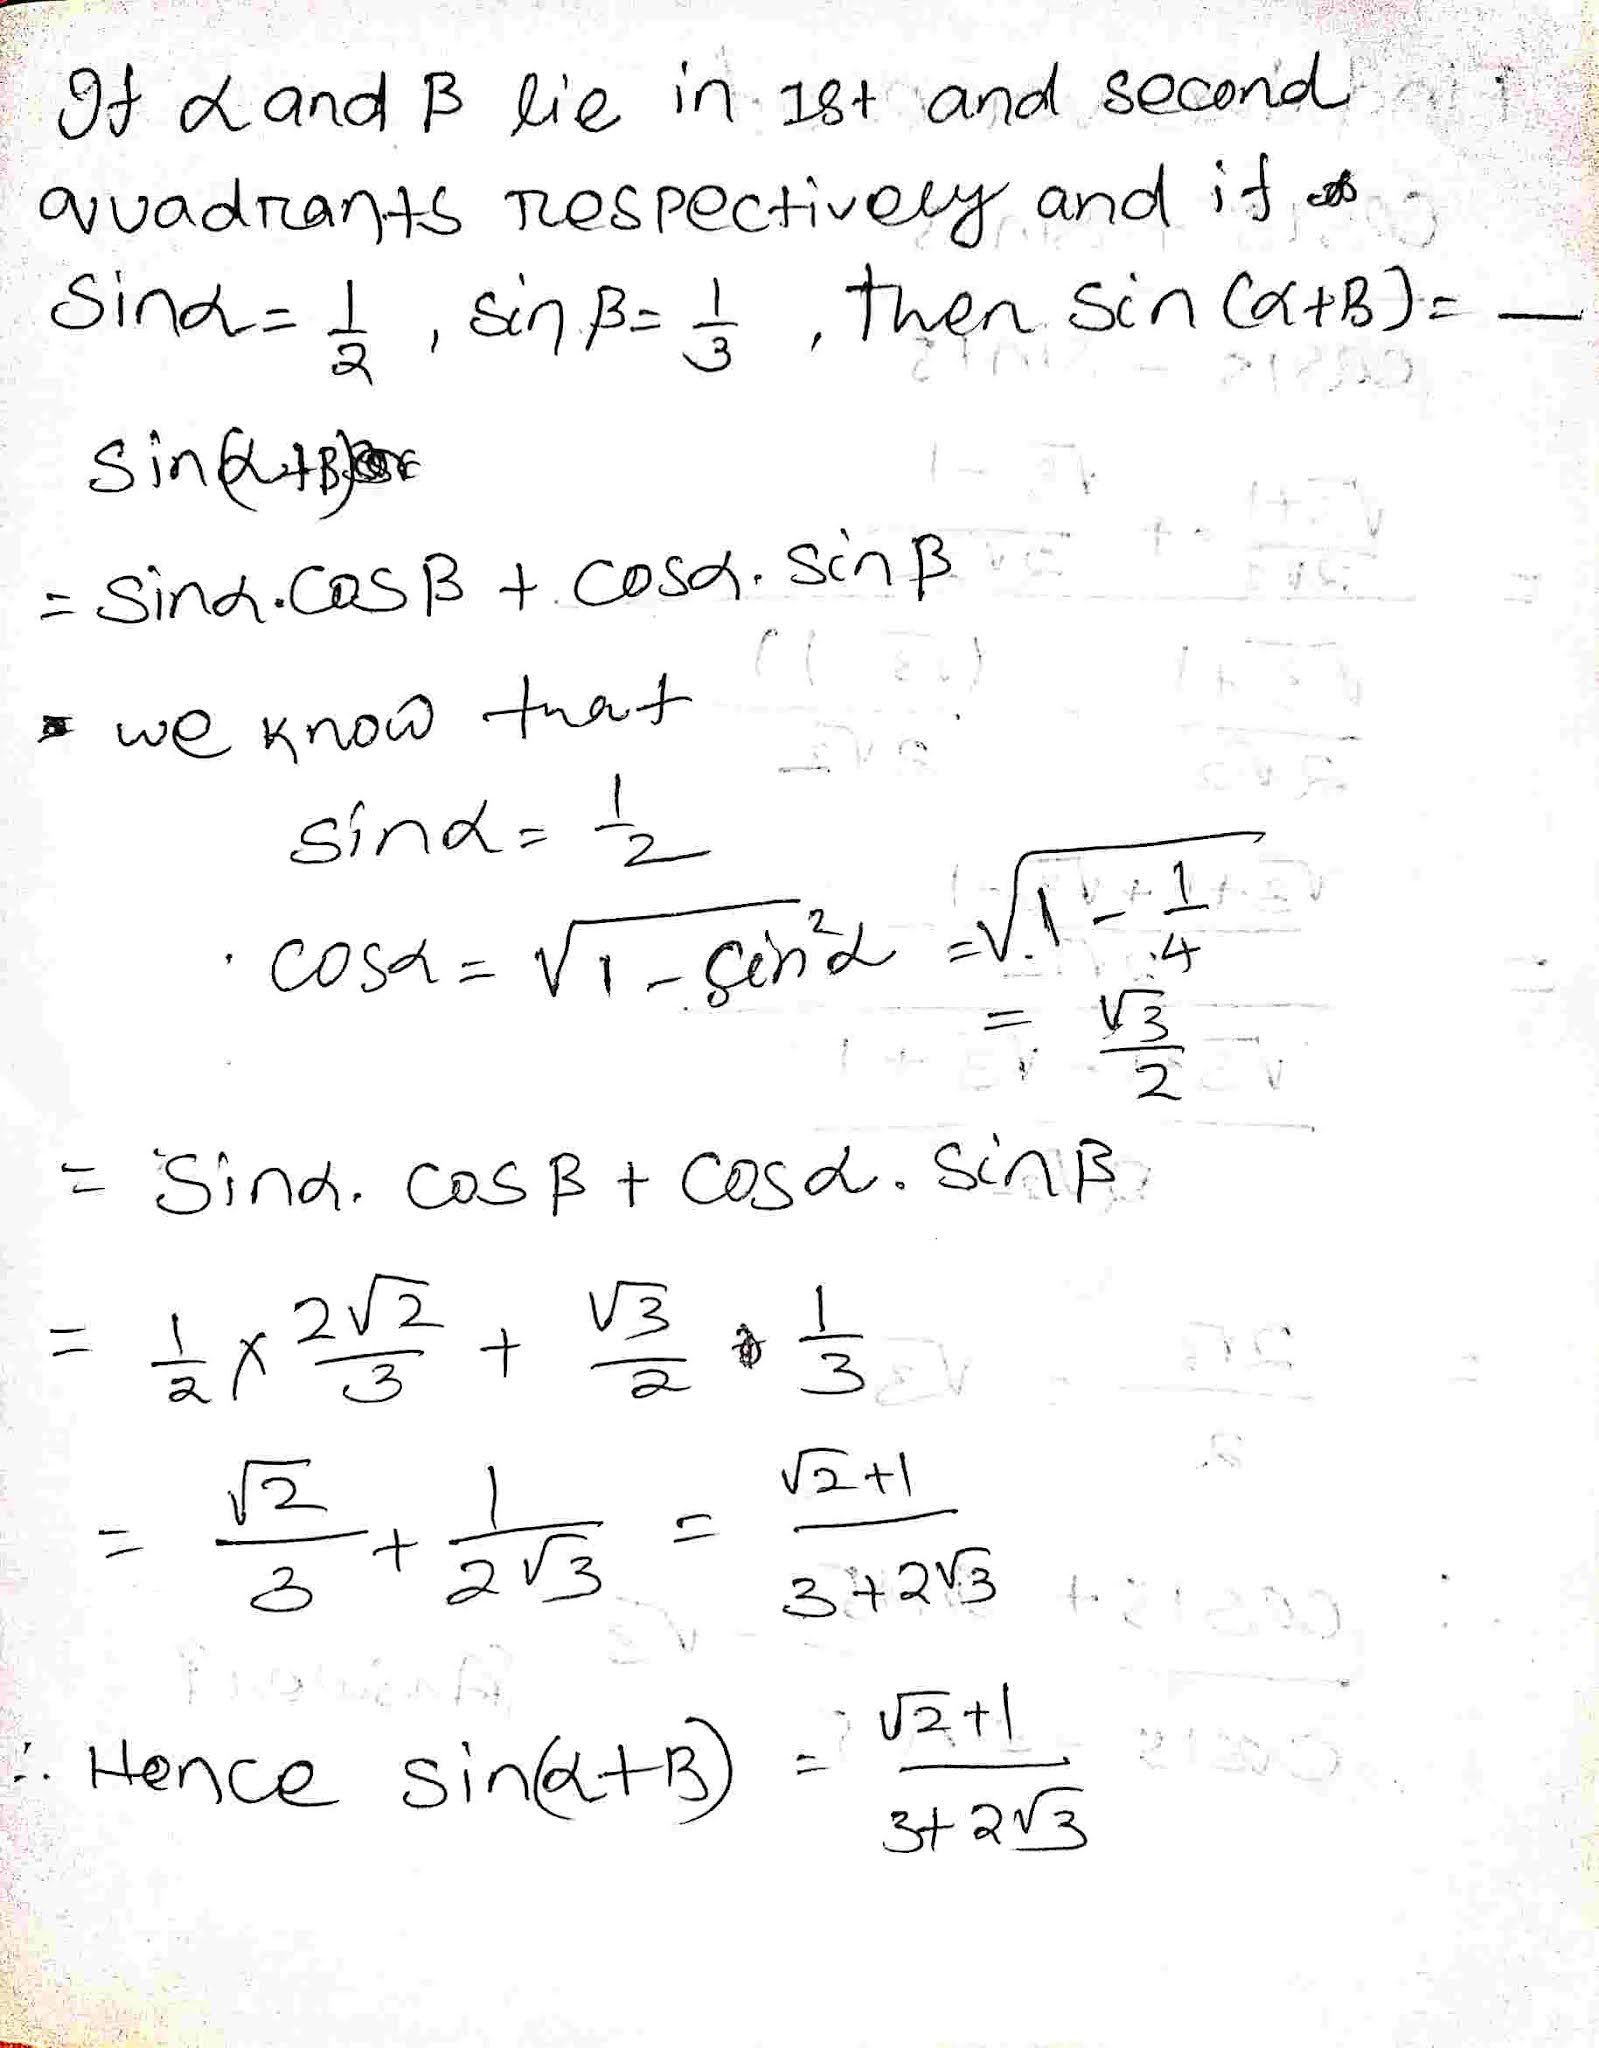 If α and β lie in 1st and second
quadrants respectively and if
Sinα = 1/2 , sin β = 1/3 , then Sin (α+β) = —
Sin(α+β)
= Sinα.cosβ + cosα. Sin β
we know that
sinα = 1/2
cosα = √(1 - sin²α) = √(1 - 1/4)
= √3/2
= Sinα. cosβ + cosα. Sinβ
= 1/2 × 2√2/3 + √3/2 · 1/3
= √2/3 + 1/(2√3) = (√2+1)/(3+2√3)
∴ Hence sin(α+β) = (√2+1)/(3+2√3)